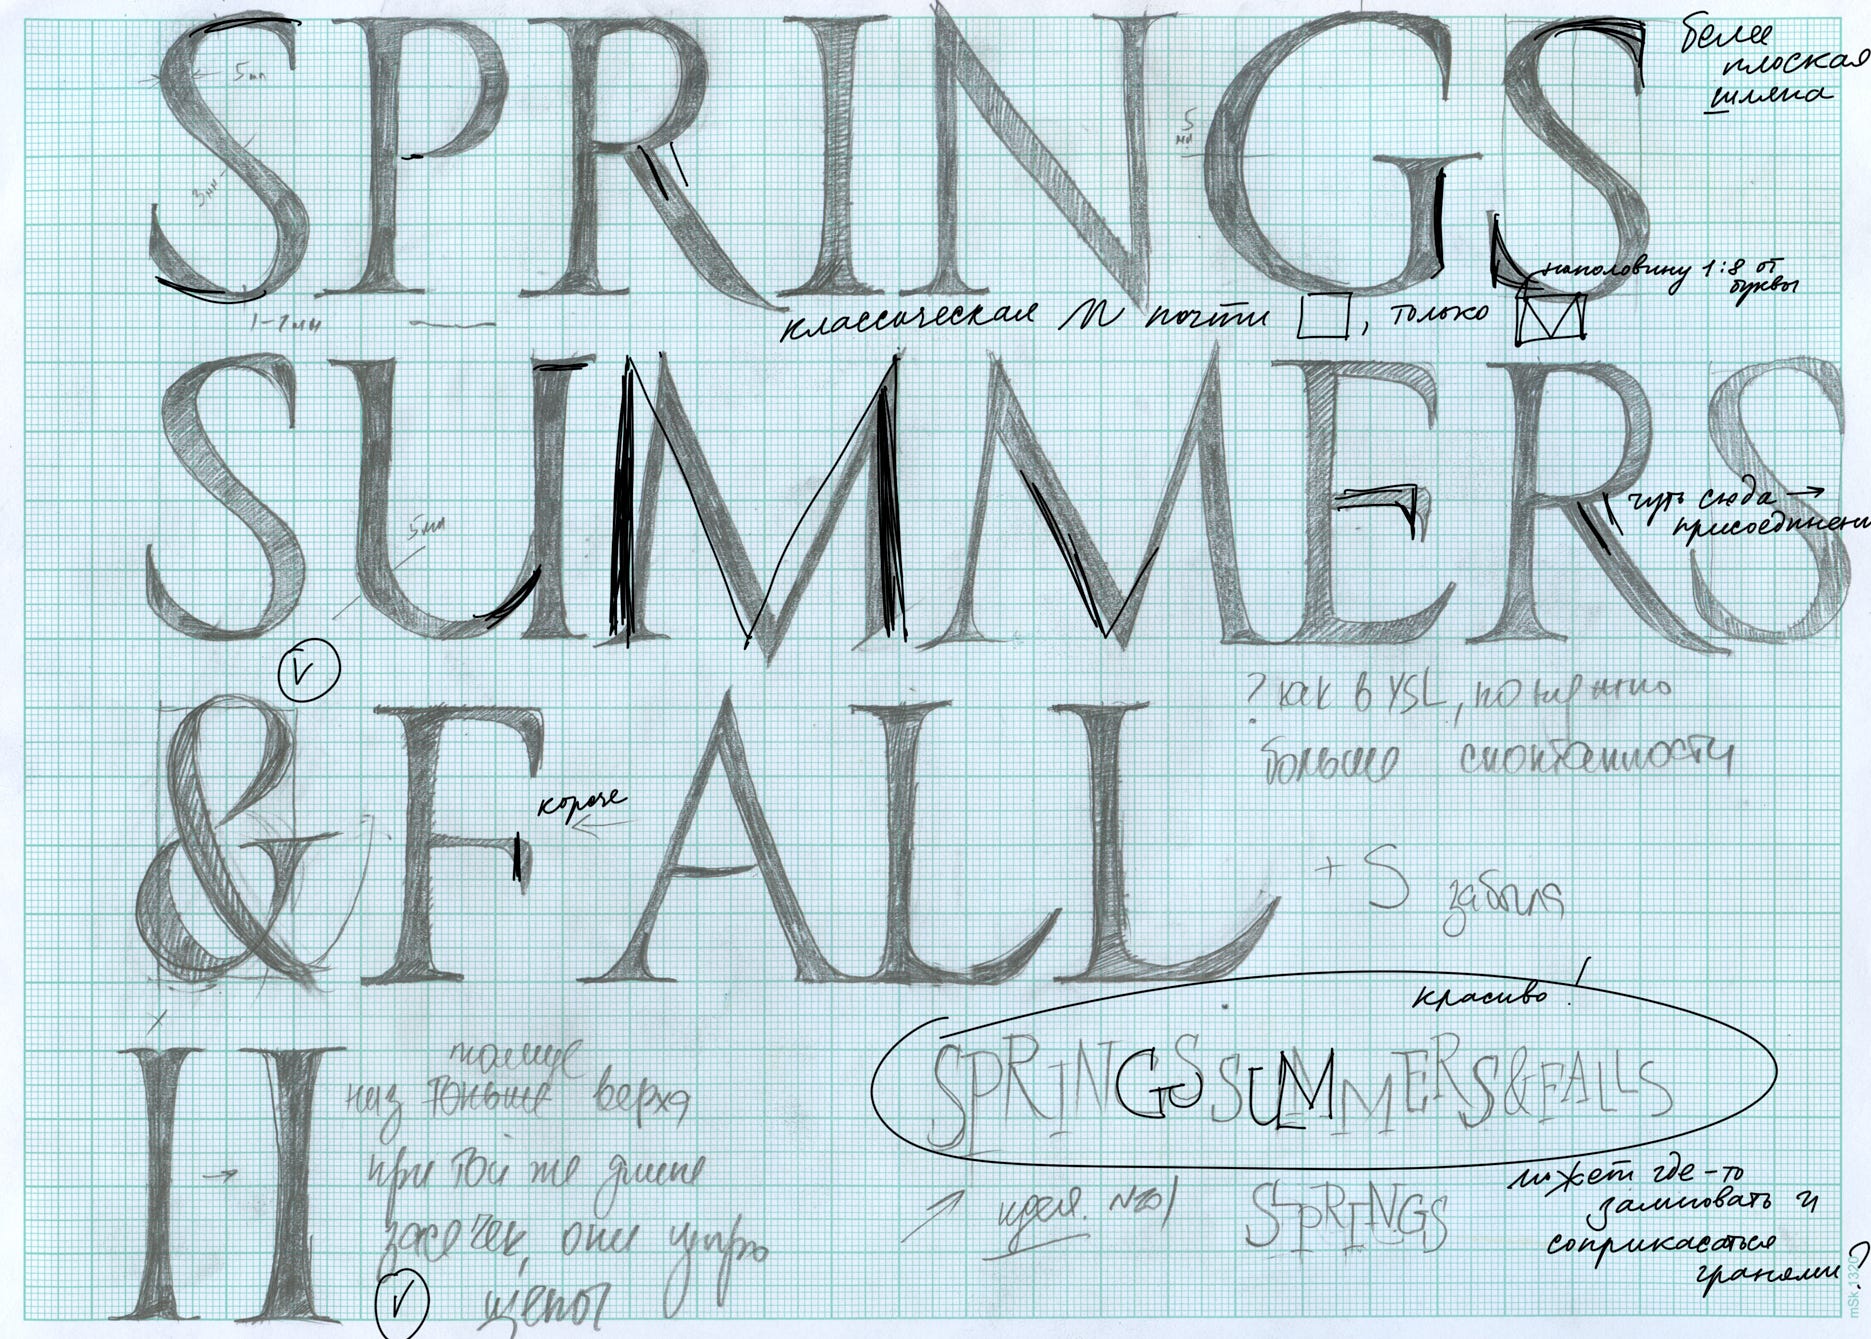 SPRINGS
более
плоская
шляпа
5мм
3мм
5
мм
1-2мм
наполовину 1:8 от
буквы
классическая М почти , только
SUMMERS
5мм
чуть сюда →
присоединени
V
? как в YSL, но нужно
больше спонтанности
& FALL
короче
←
+ S забыла
красиво!
SPRINGS SUMMERS & FALLS
II
→
толще
низ тоньше верха
при той же длине
засечек, они
V
идея. №
SPRINGS
может где-то
залиповать и
соприкасаться
гранями?
mSk_1320